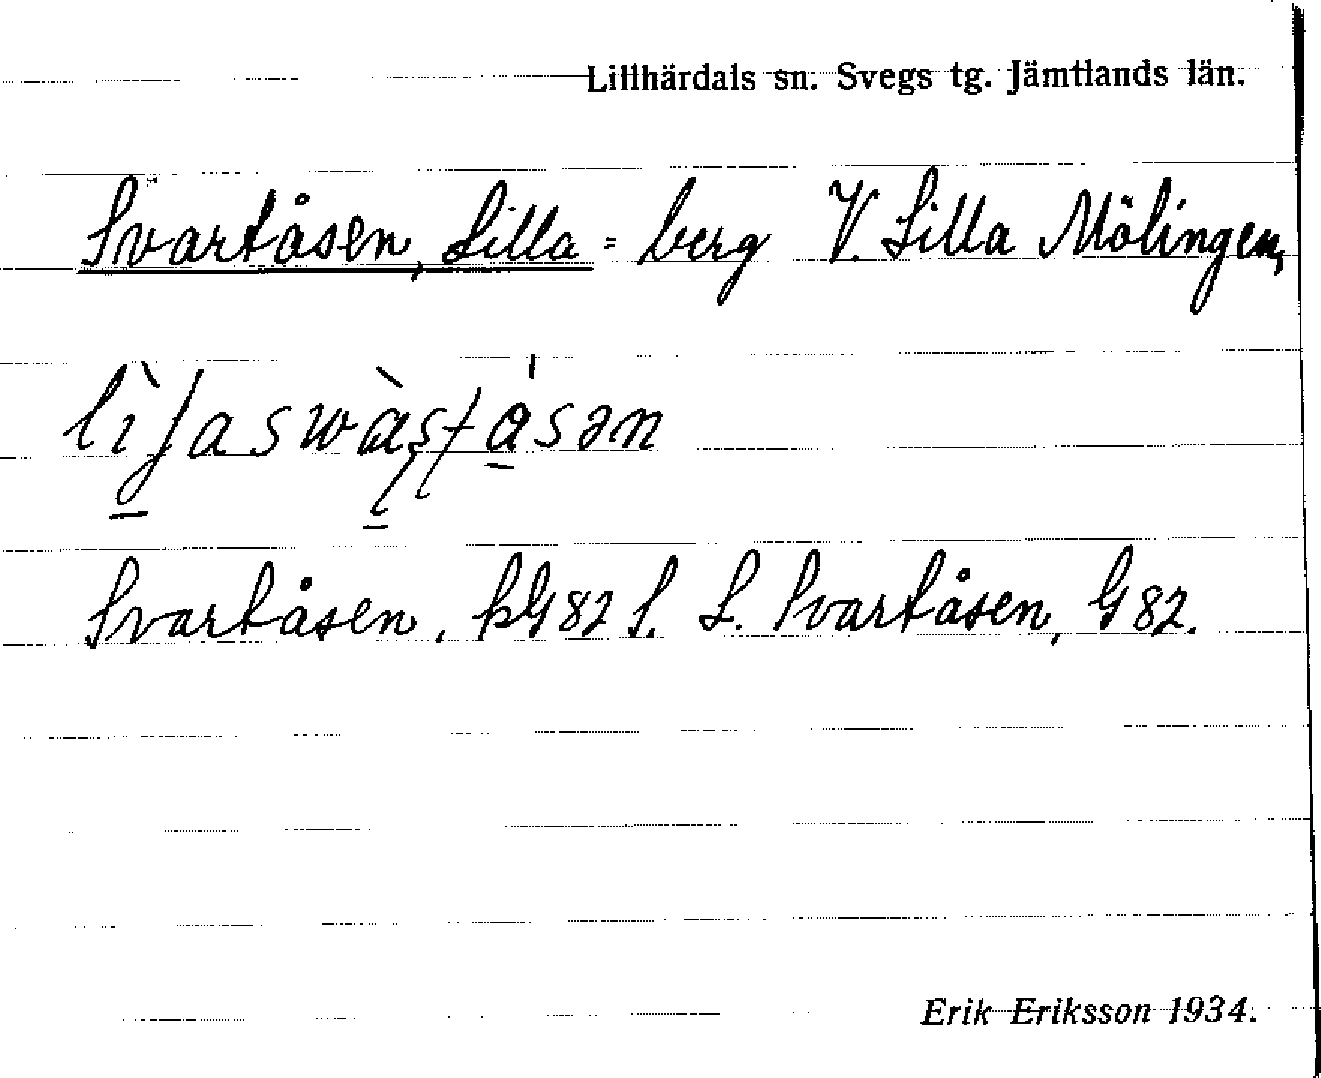 Lillhärdals sn. Svegs tg. Jämtlands län.
Svartåsen, Lilla = berg V. Lilla Mölingen,
Svartåsen. kG82 S. L. Svartåsen, G82.
Erik Eriksson 1934.